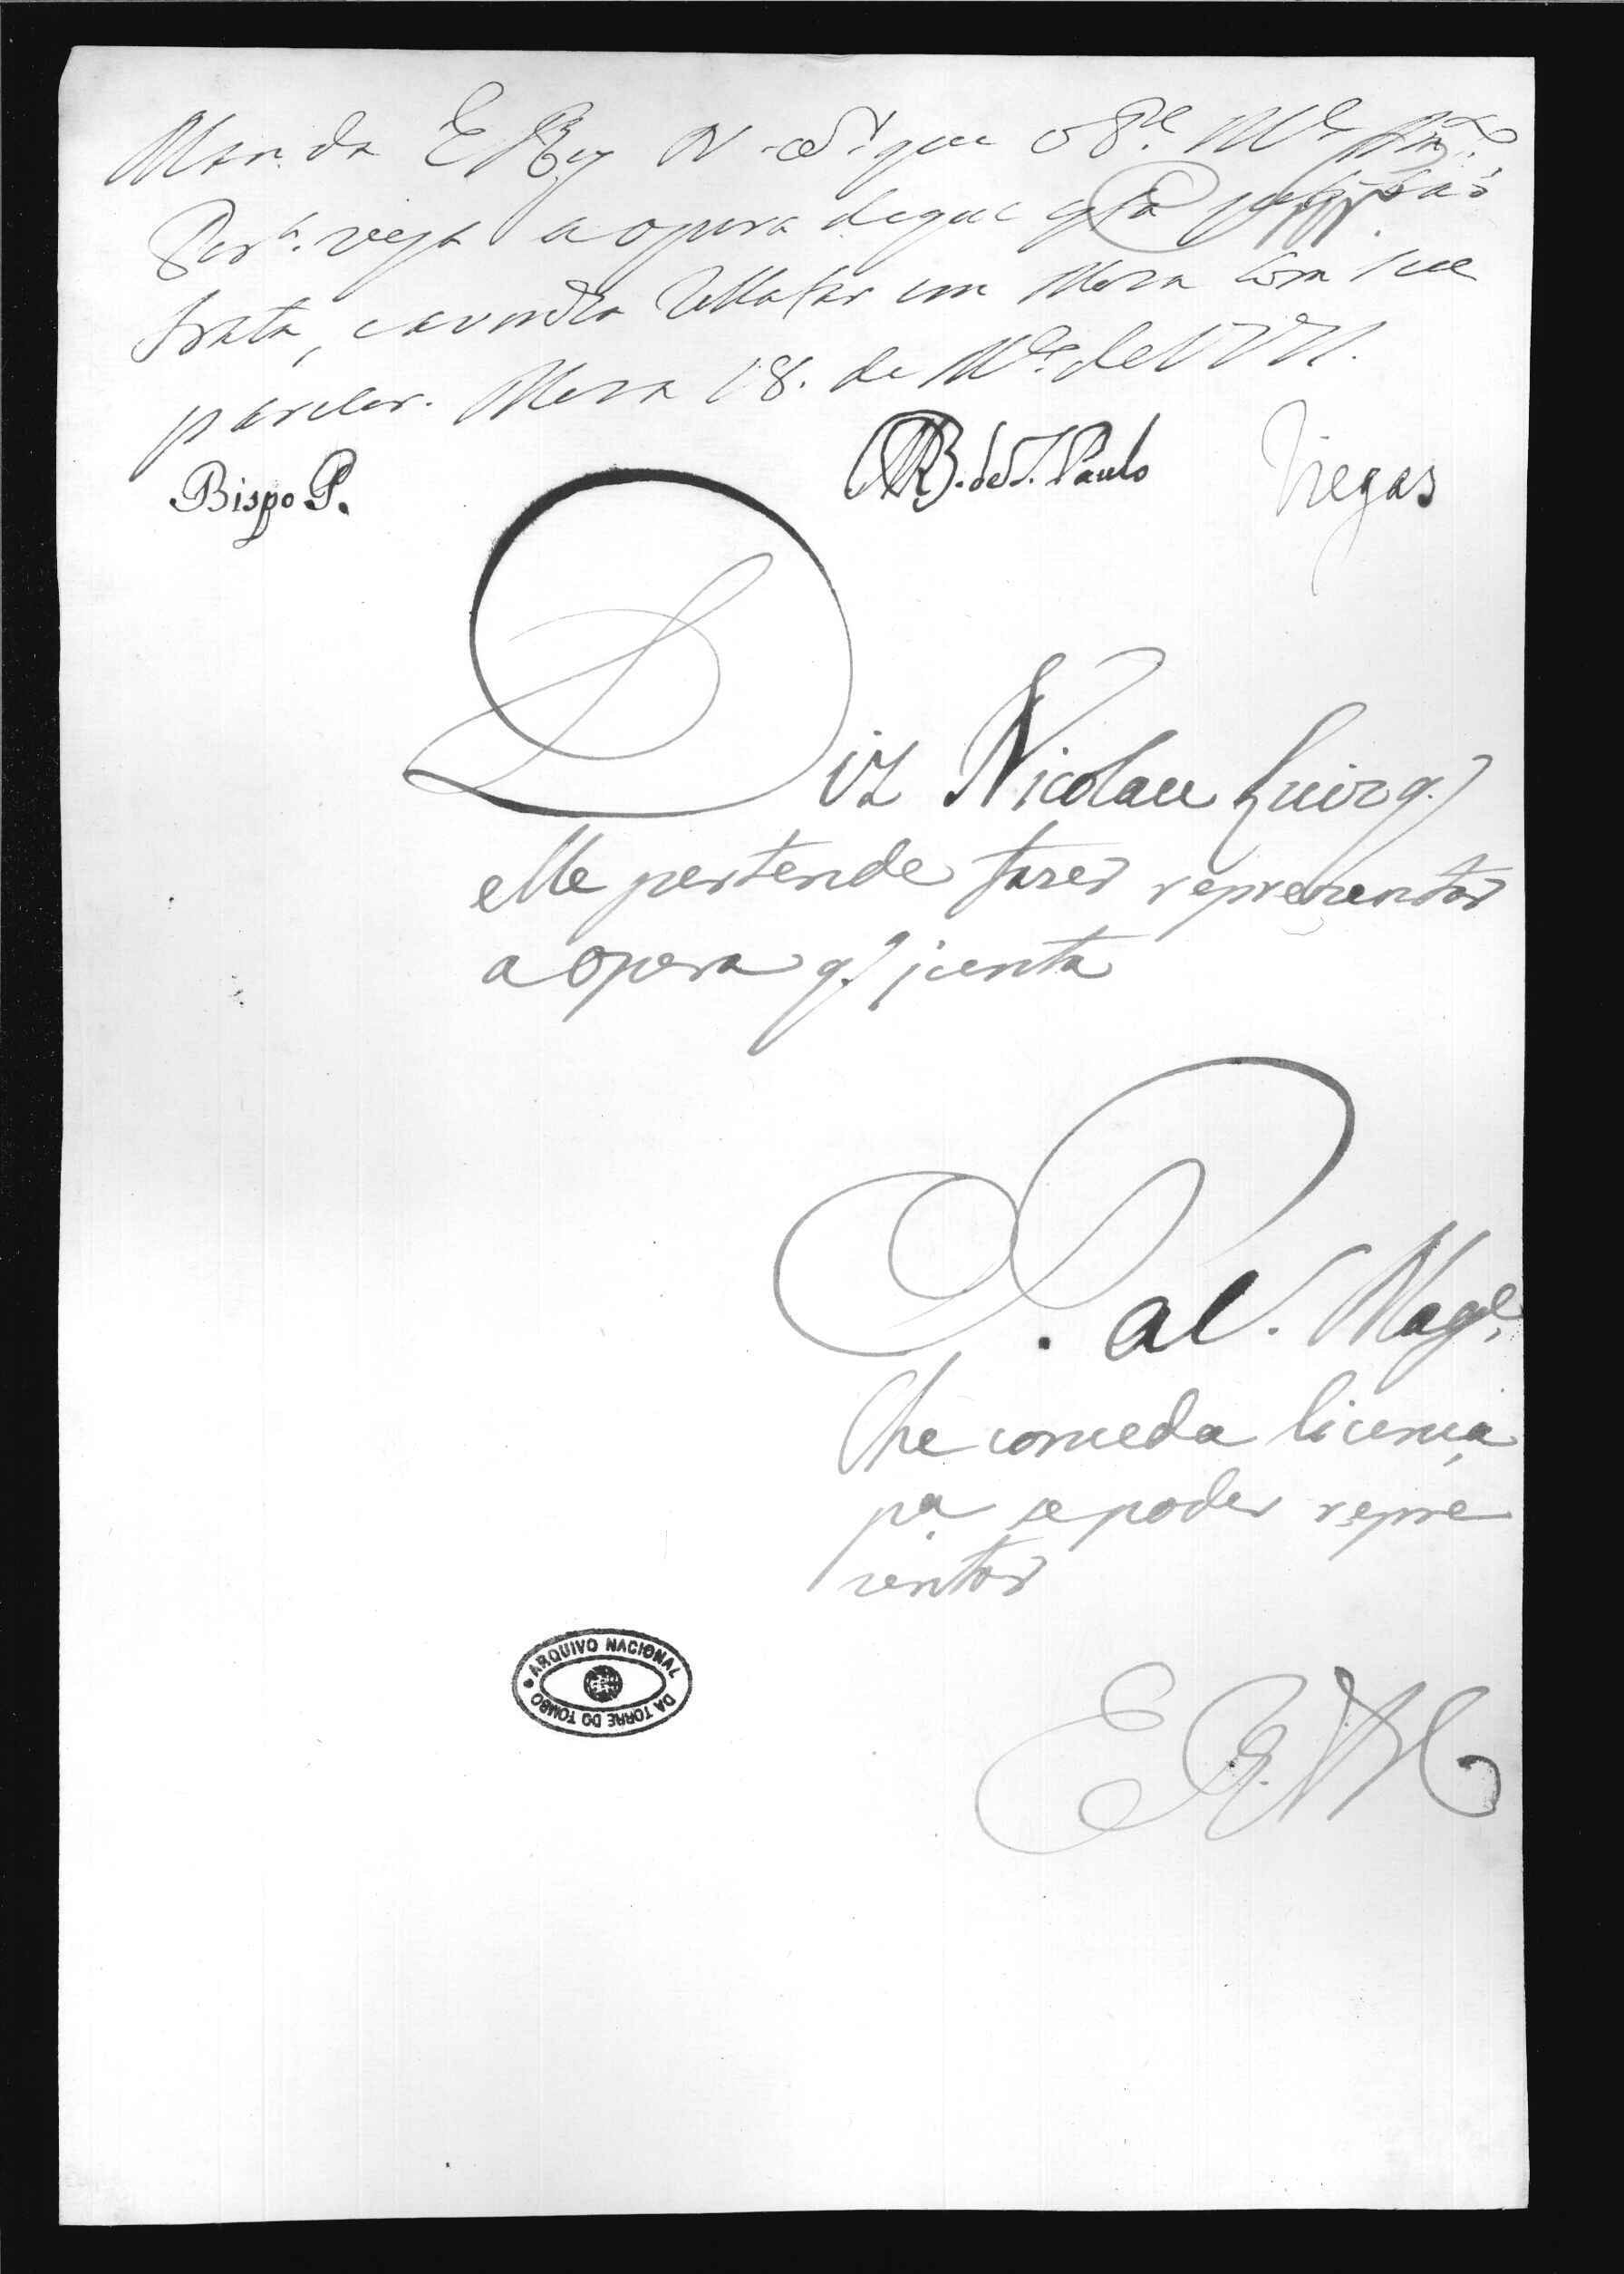 Manda El Rey N. S.r que o P.e M.e Ant.o
Per.a veja a opera de que esta petição
trata, e a venha rellatar em Meza com seu
parecer. Meza 18. de de 1771.
Bispo P. B. de S. Paulo Viegas
Diz Nicolau Luiz q.
elle pertende fazer reprezentar
a opera q. junta
P. a V. Mag.e
lhe conceda licença
pa se poder repre
zentar
E R M
ARQUIVO NACIONAL DA TORRE DO TOMBO